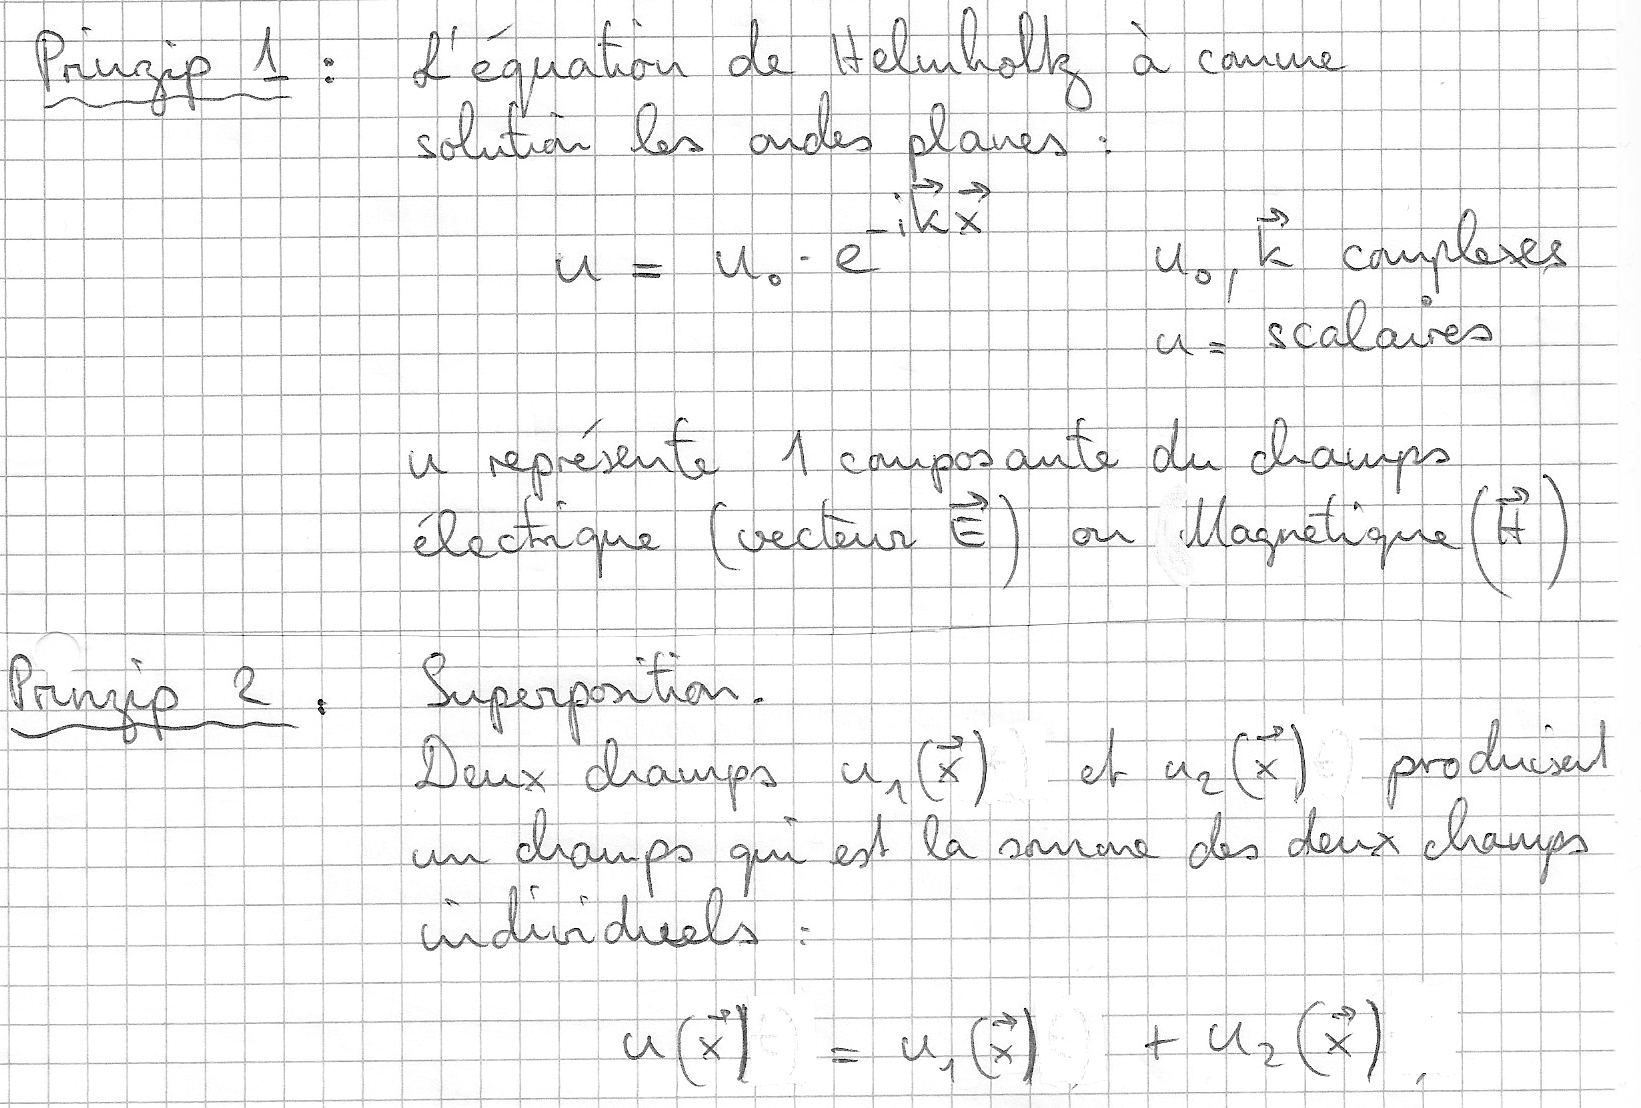 Prinzip 1 : L'équation de Helmholtz à comme
solution les ondes planes :
u = u₀ · e^{-i\vec{k}\vec{x}} u₀, \vec{k} complexes
u = scalaires
u représente 1 composante du champs
électrique (vecteur \vec{E}) ou Magnétique (\vec{H})
Prinzip 2 : Superposition.
Deux champs u₁(\vec{x}) et u₂(\vec{x}) produisent
un champs qui est la somme des deux champs
individuels :
u(\vec{x}) = u₁(\vec{x}) + u₂(\vec{x}).